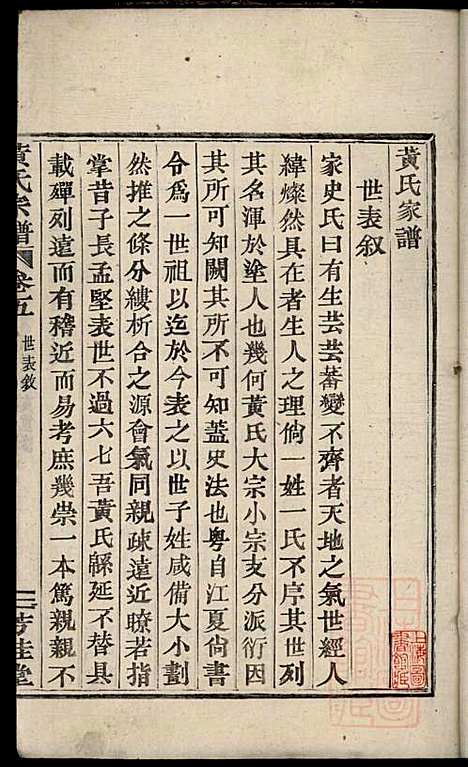 黃氏家譜
世表叙
家史氏曰有生芸芸蕃變不齊者天地之氣世經人
緯燦然具在者生人之理倘一姓一氏不序其世列
其名渾於塗人也幾何黃氏大宗小宗支分派衍因
其所可知闕其所不可知蓋史法也粵自江夏尙書
令爲一世祖以迄於今表之以世子姓咸備大小劃
然推之條分縷析合之源會氣同親疎遠近瞭若指
掌昔子長孟堅表世不過六七吾黃氏緜延不替具
載殫列遠而有稽近而易考庶幾崇一本篤親親不
黃氏宗譜
卷五
世表敘
一
芳桂堂